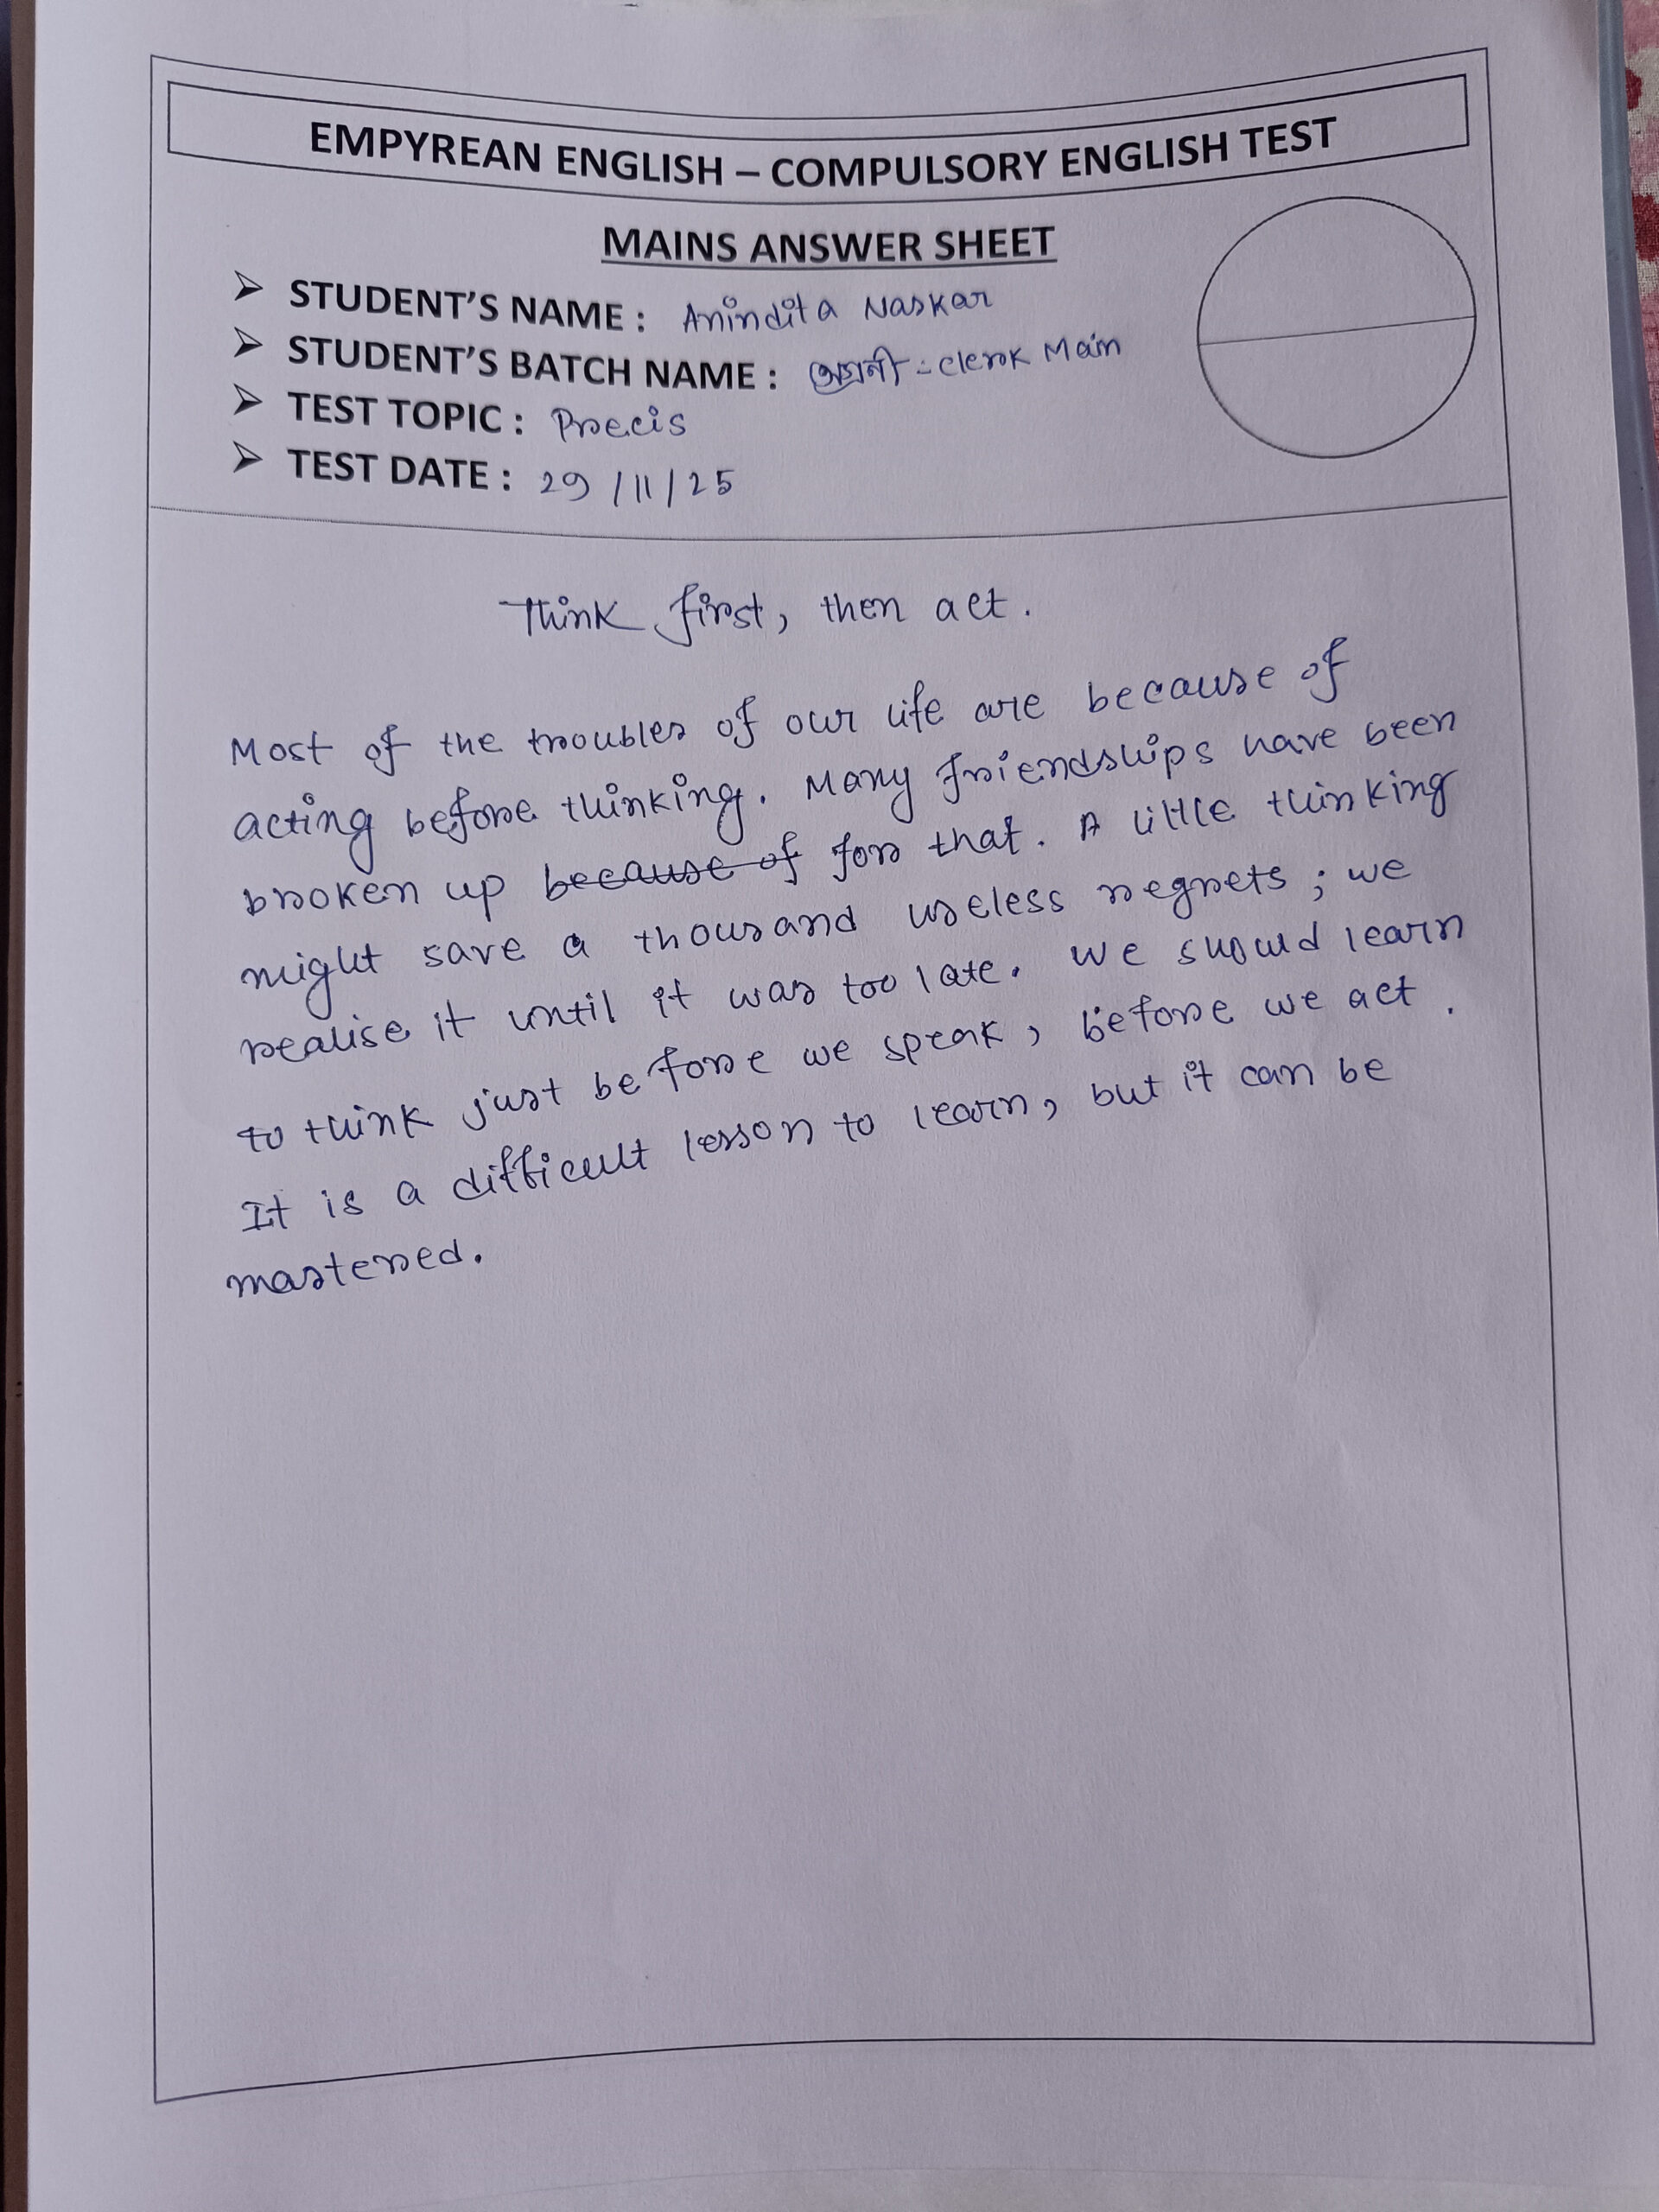 EMPYREAN ENGLISH – COMPULSORY ENGLISH TEST
MAINS ANSWER SHEET
➢ STUDENT'S NAME : Anindita Naskar
➢ STUDENT'S BATCH NAME : অগ্রনী - Clerk Main
➢ TEST TOPIC : Precis
➢ TEST DATE : 29/11/25
Think first, then act.
Most of the troubles of our life are because of
acting before thinking. Many friendships have been
broken up because of for that. A little thinking
might save a thousand useless regrets ; we
realise it until it was too late. We should learn
to think just before we speak, before we act.
It is a difficult lesson to learn, but it can be
mastered.